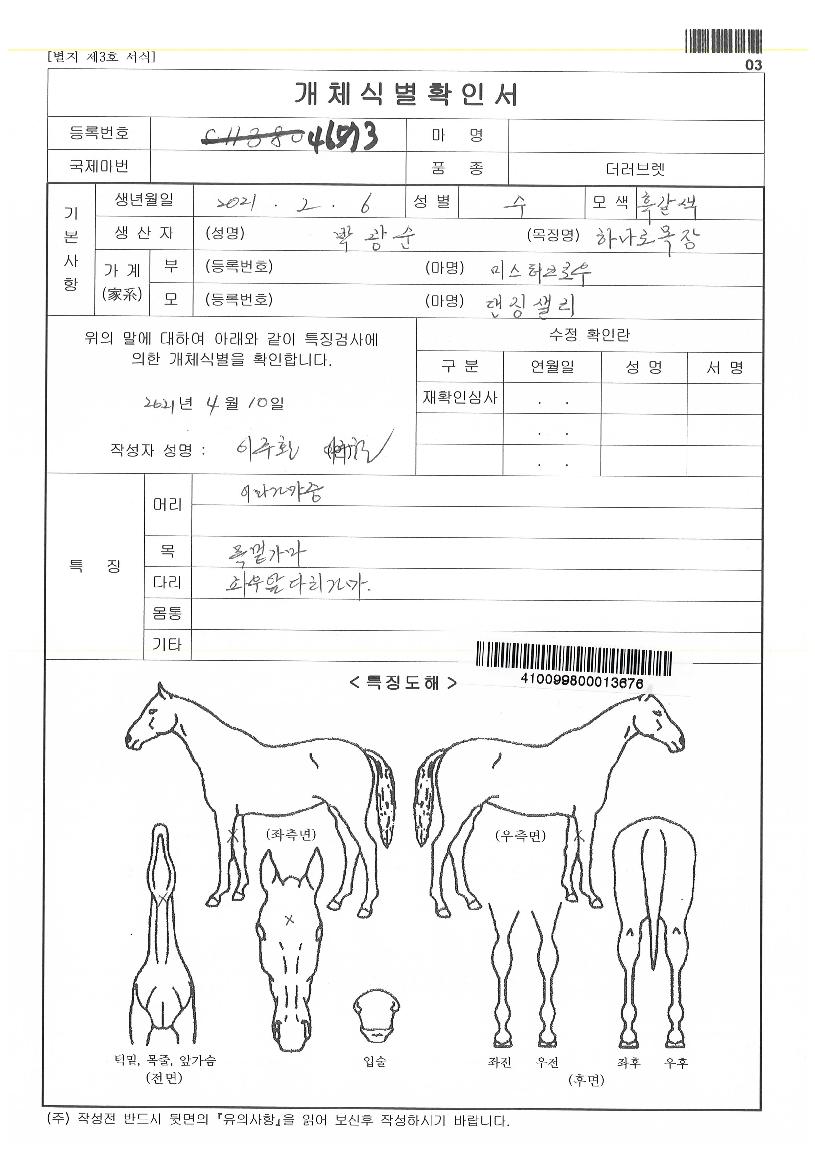 [별지 제3호 서식]
03
개체식별확인서
등록번호 046573 마 명
국제마번 품 종 더러브렛
기본사항
생년월일 2021 . 2 . 6 성 별 수 모 색 흑갈색
생 산 자 (성명) 박광순 (목장명) 하나로목장
가 계 (家系) 부 (등록번호) (마명) 미스터크로우
모 (등록번호) (마명) 댄싱샐리
위의 말에 대하여 아래와 같이 특징검사에
의한 개체식별을 확인합니다.
2021년 4월 10일
작성자 성명 :
수정 확인란
구 분 연월일 성 명 서 명
재확인심사 . .
. .
. .
특 징
머리 이마가마중
목 목밑가마
다리 좌우앞다리가마.
몸통
기타
410099800013676
< 특징도해 >
(좌측면) (우측면)
턱밑, 목줄, 앞가슴
(전면)
입술
좌전 우전 좌후 우후
(후면)
(주) 작성전 반드시 뒷면의 『유의사항』을 읽어 보신후 작성하시기 바랍니다.